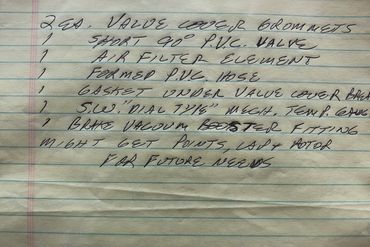 2 EA. VALVE COVER GROMMETS
1 SHORT 90° P.V.C. VALVE
1 AIR FILTER ELEMENT
1 FORMED P.V.C. HOSE
1 GASKET UNDER VALVE COVER
1 "DIAL TYPE" MECH. TEMP. GAUG
1 BRAKE VACUUM BOOSTER FITTING
MIGHT GET POINTS, CAP & ROTOR
FOR FUTURE NEEDS